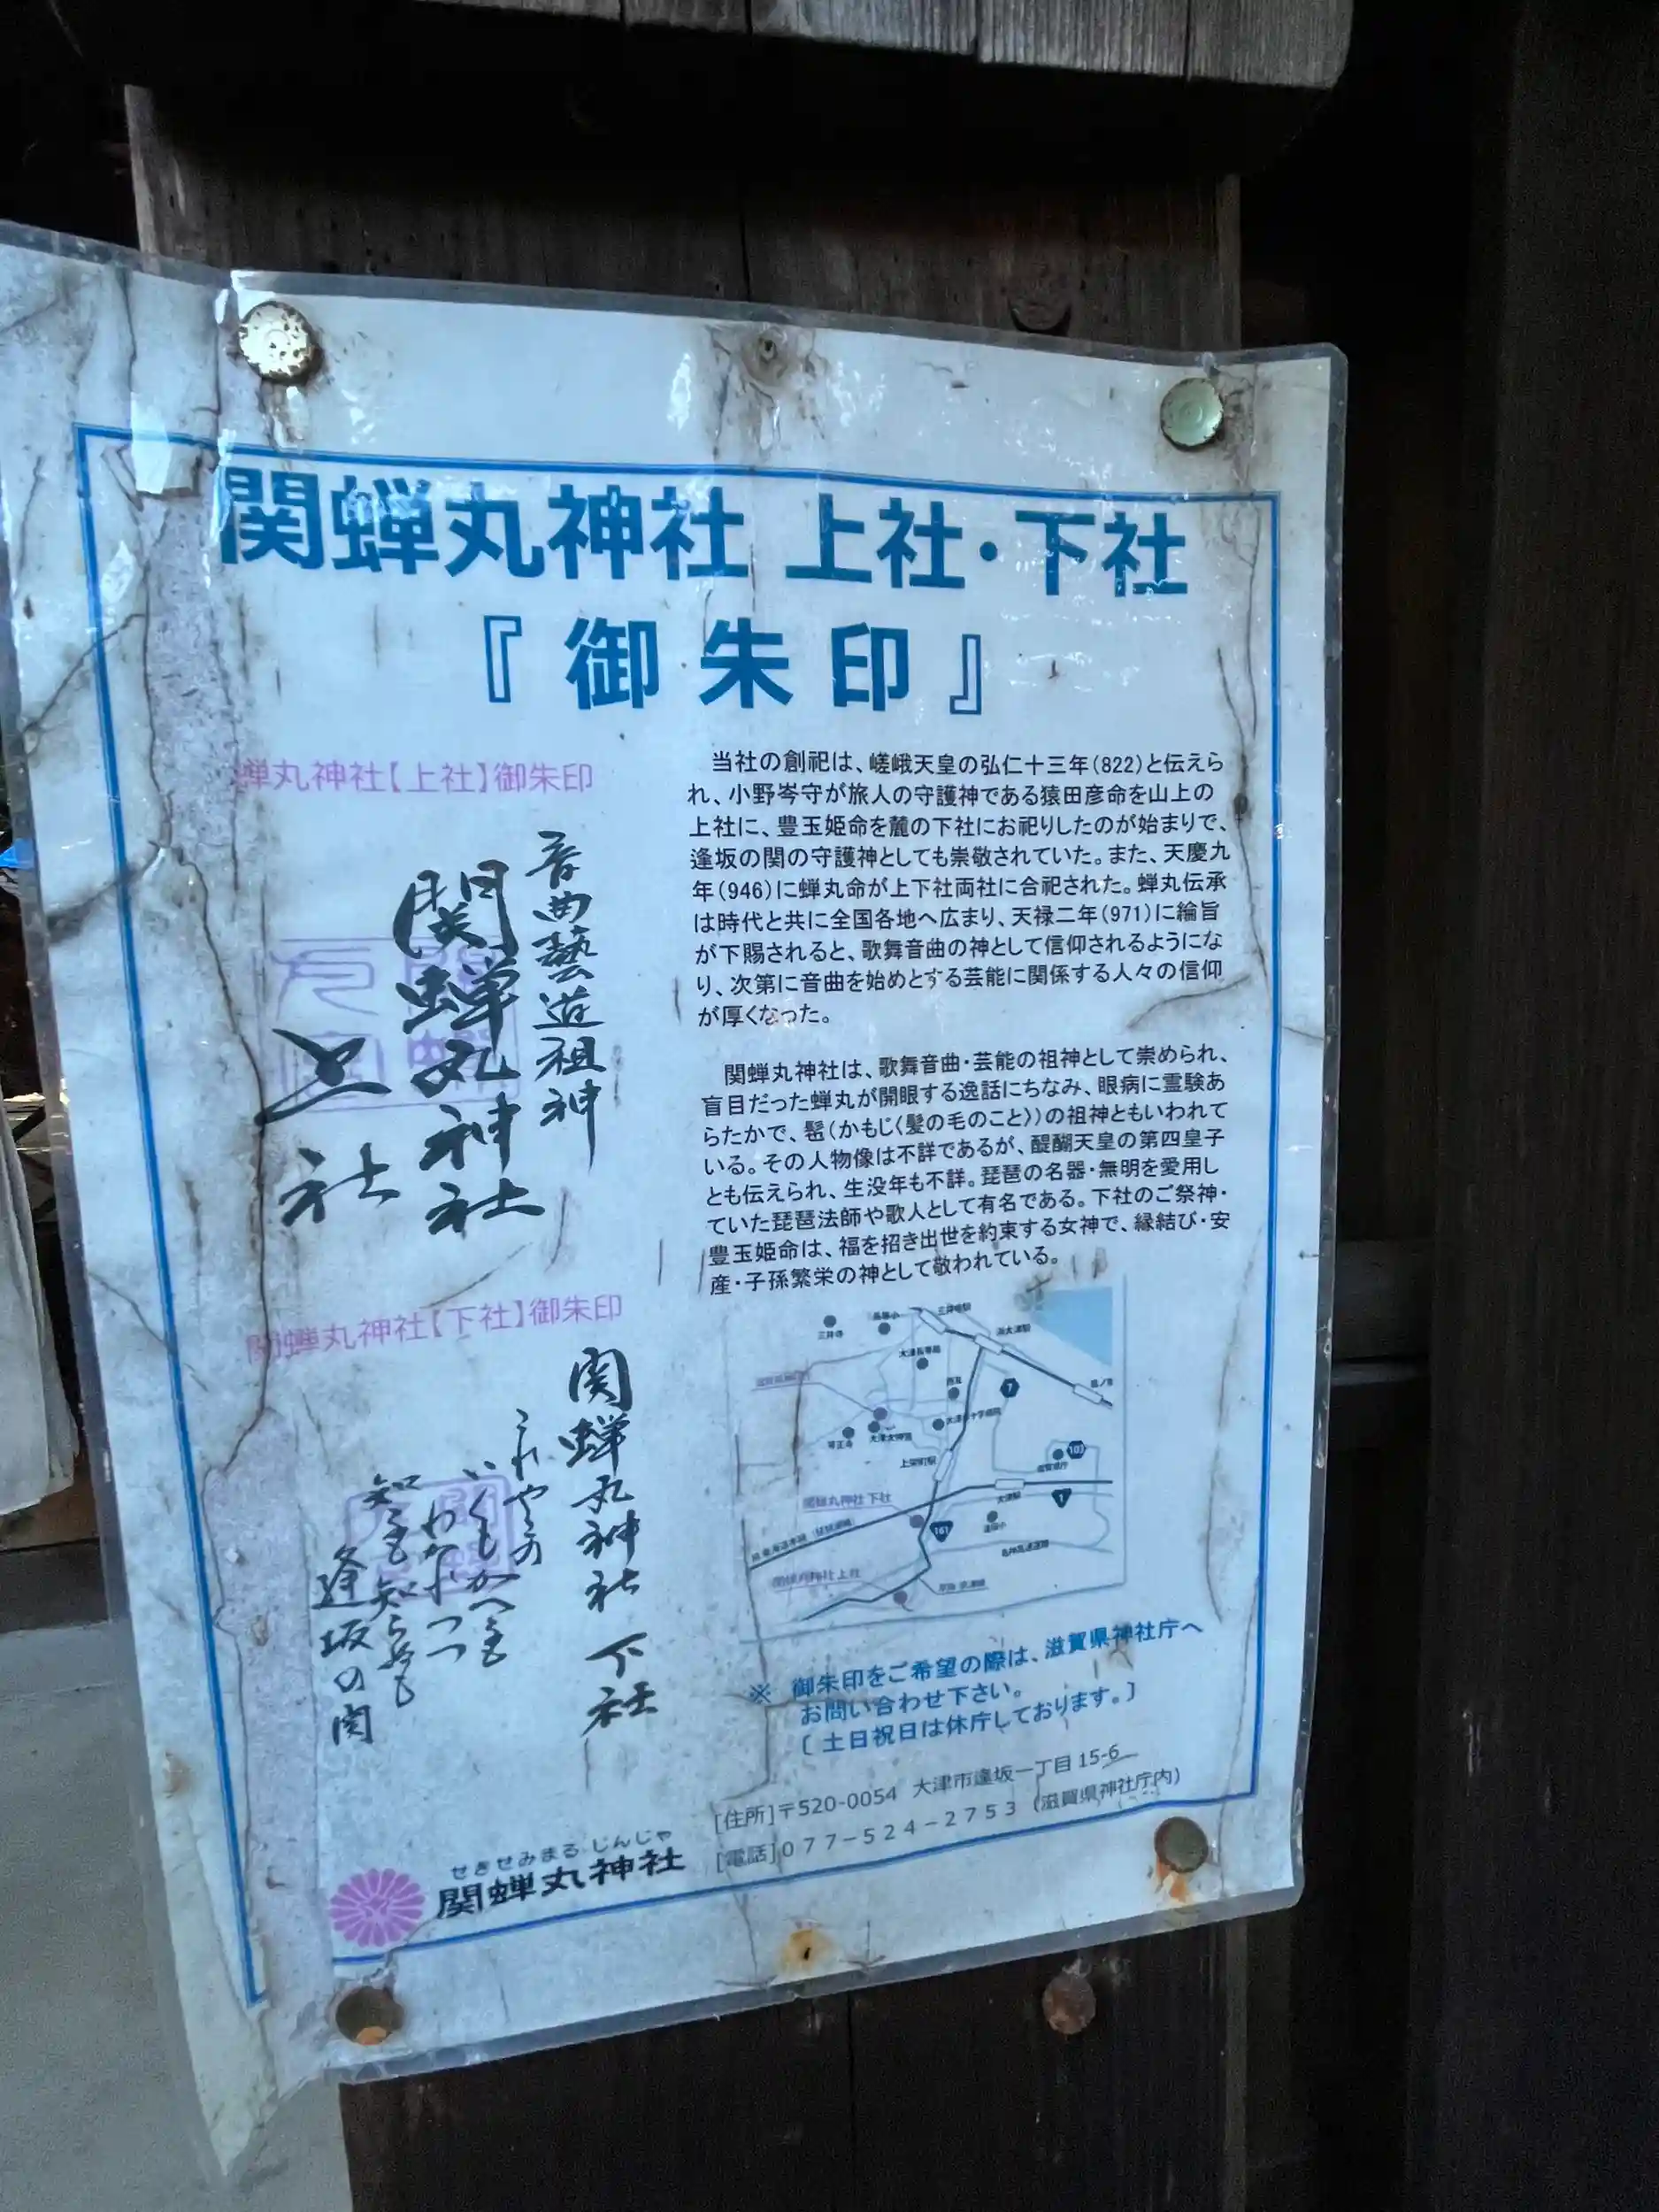 関蝉丸神社 上社・下社
『御朱印』
蝉丸神社【上社】御朱印
音曲藝道祖神
関蝉丸神社
上社
関蝉丸神社【下社】御朱印
関蝉丸神社 下社
これやこの
いくもかへるも
わかれつつ
知るも知らぬも
逢坂の関
せきせみまるじんじゃ
関蝉丸神社
当社の創祀は、嵯峨天皇の弘仁十三年(822)と伝えら
れ、小野岑守が旅人の守護神である猿田彦命を山上の
上社に、豊玉姫命を麓の下社にお祀りしたのが始まりで、
逢坂の関の守護神としても崇敬されていた。また、天慶九
年(946)に蝉丸命が上下社両社に合祀された。蝉丸伝承
は時代と共に全国各地へ広まり、天禄二年(971)に綸旨
が下賜されると、歌舞音曲の神として信仰されるようにな
り、次第に音曲を始めとする芸能に関係する人々の信仰
が厚くなった。
関蝉丸神社は、歌舞音曲・芸能の祖神として崇められ、
盲目だった蝉丸が開眼する逸話にちなみ、眼病に霊験あ
らたかで、髢(かもじ〈髪の毛のこと〉)の祖神ともいわれて
いる。その人物像は不詳であるが、醍醐天皇の第四皇子
とも伝えられ、生没年も不詳。琵琶の名器・無明を愛用し
ていた琵琶法師や歌人として有名である。下社のご祭神・
豊玉姫命は、福を招き出世を約束する女神で、縁結び・安
産・子孫繁栄の神として敬われている。
三井寺
長等小
三井寺駅
浜大津駅
7
大津赤十字病院
103
上栄町駅
大津駅
1
関蝉丸神社 下社
161
逢坂小
名神高速道路
関蝉丸神社 上社
※ 御朱印をご希望の際は、滋賀県神社庁へ
お問い合わせ下さい。
〔土日祝日は休庁しております。〕
[住所]〒520-0054 大津市逢坂一丁目15-6
[電話]077-524-2753 (滋賀県神社庁内)